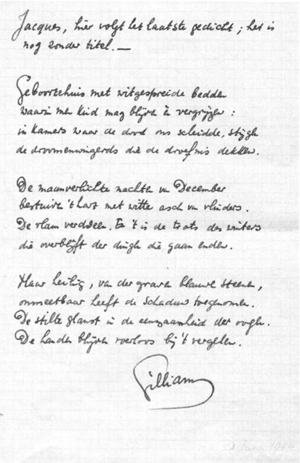 Jacques, hier volgt het laatste gedicht; het is
nog zonder titel.—
Geboortehuis met witgespreide bedden
waarin men kind mag blijven en vergrijzen:
in kamers waar de dood ons scheidde, stijgen
de droomenwingerds die de droefnis dekken.
De maanverlichte nachten van December
bestuiven 't hart met witte asch van vlinders.
De vlam verdween. En 't is de des winters
die overblijft der dingen die gaan enden.
Haar heilig, van de graven blauwe steenen,
onmeetbaar heeft de schaduw toegenomen.
De stilte glanst in de eenzaamheid der oogen.
De handen blijven roerloos bij 't vergelen.
Gilliams